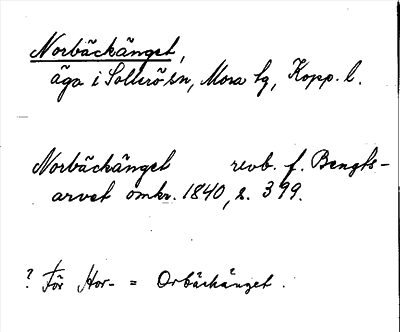 Norbäckänget,
äga i Sollerö sn, Mora tg, Kopp. l.
Norbäckänget revb. f. Bengts-
arvet omkr. 1840, s. 399.
? För Hor- = Orbäckänget.